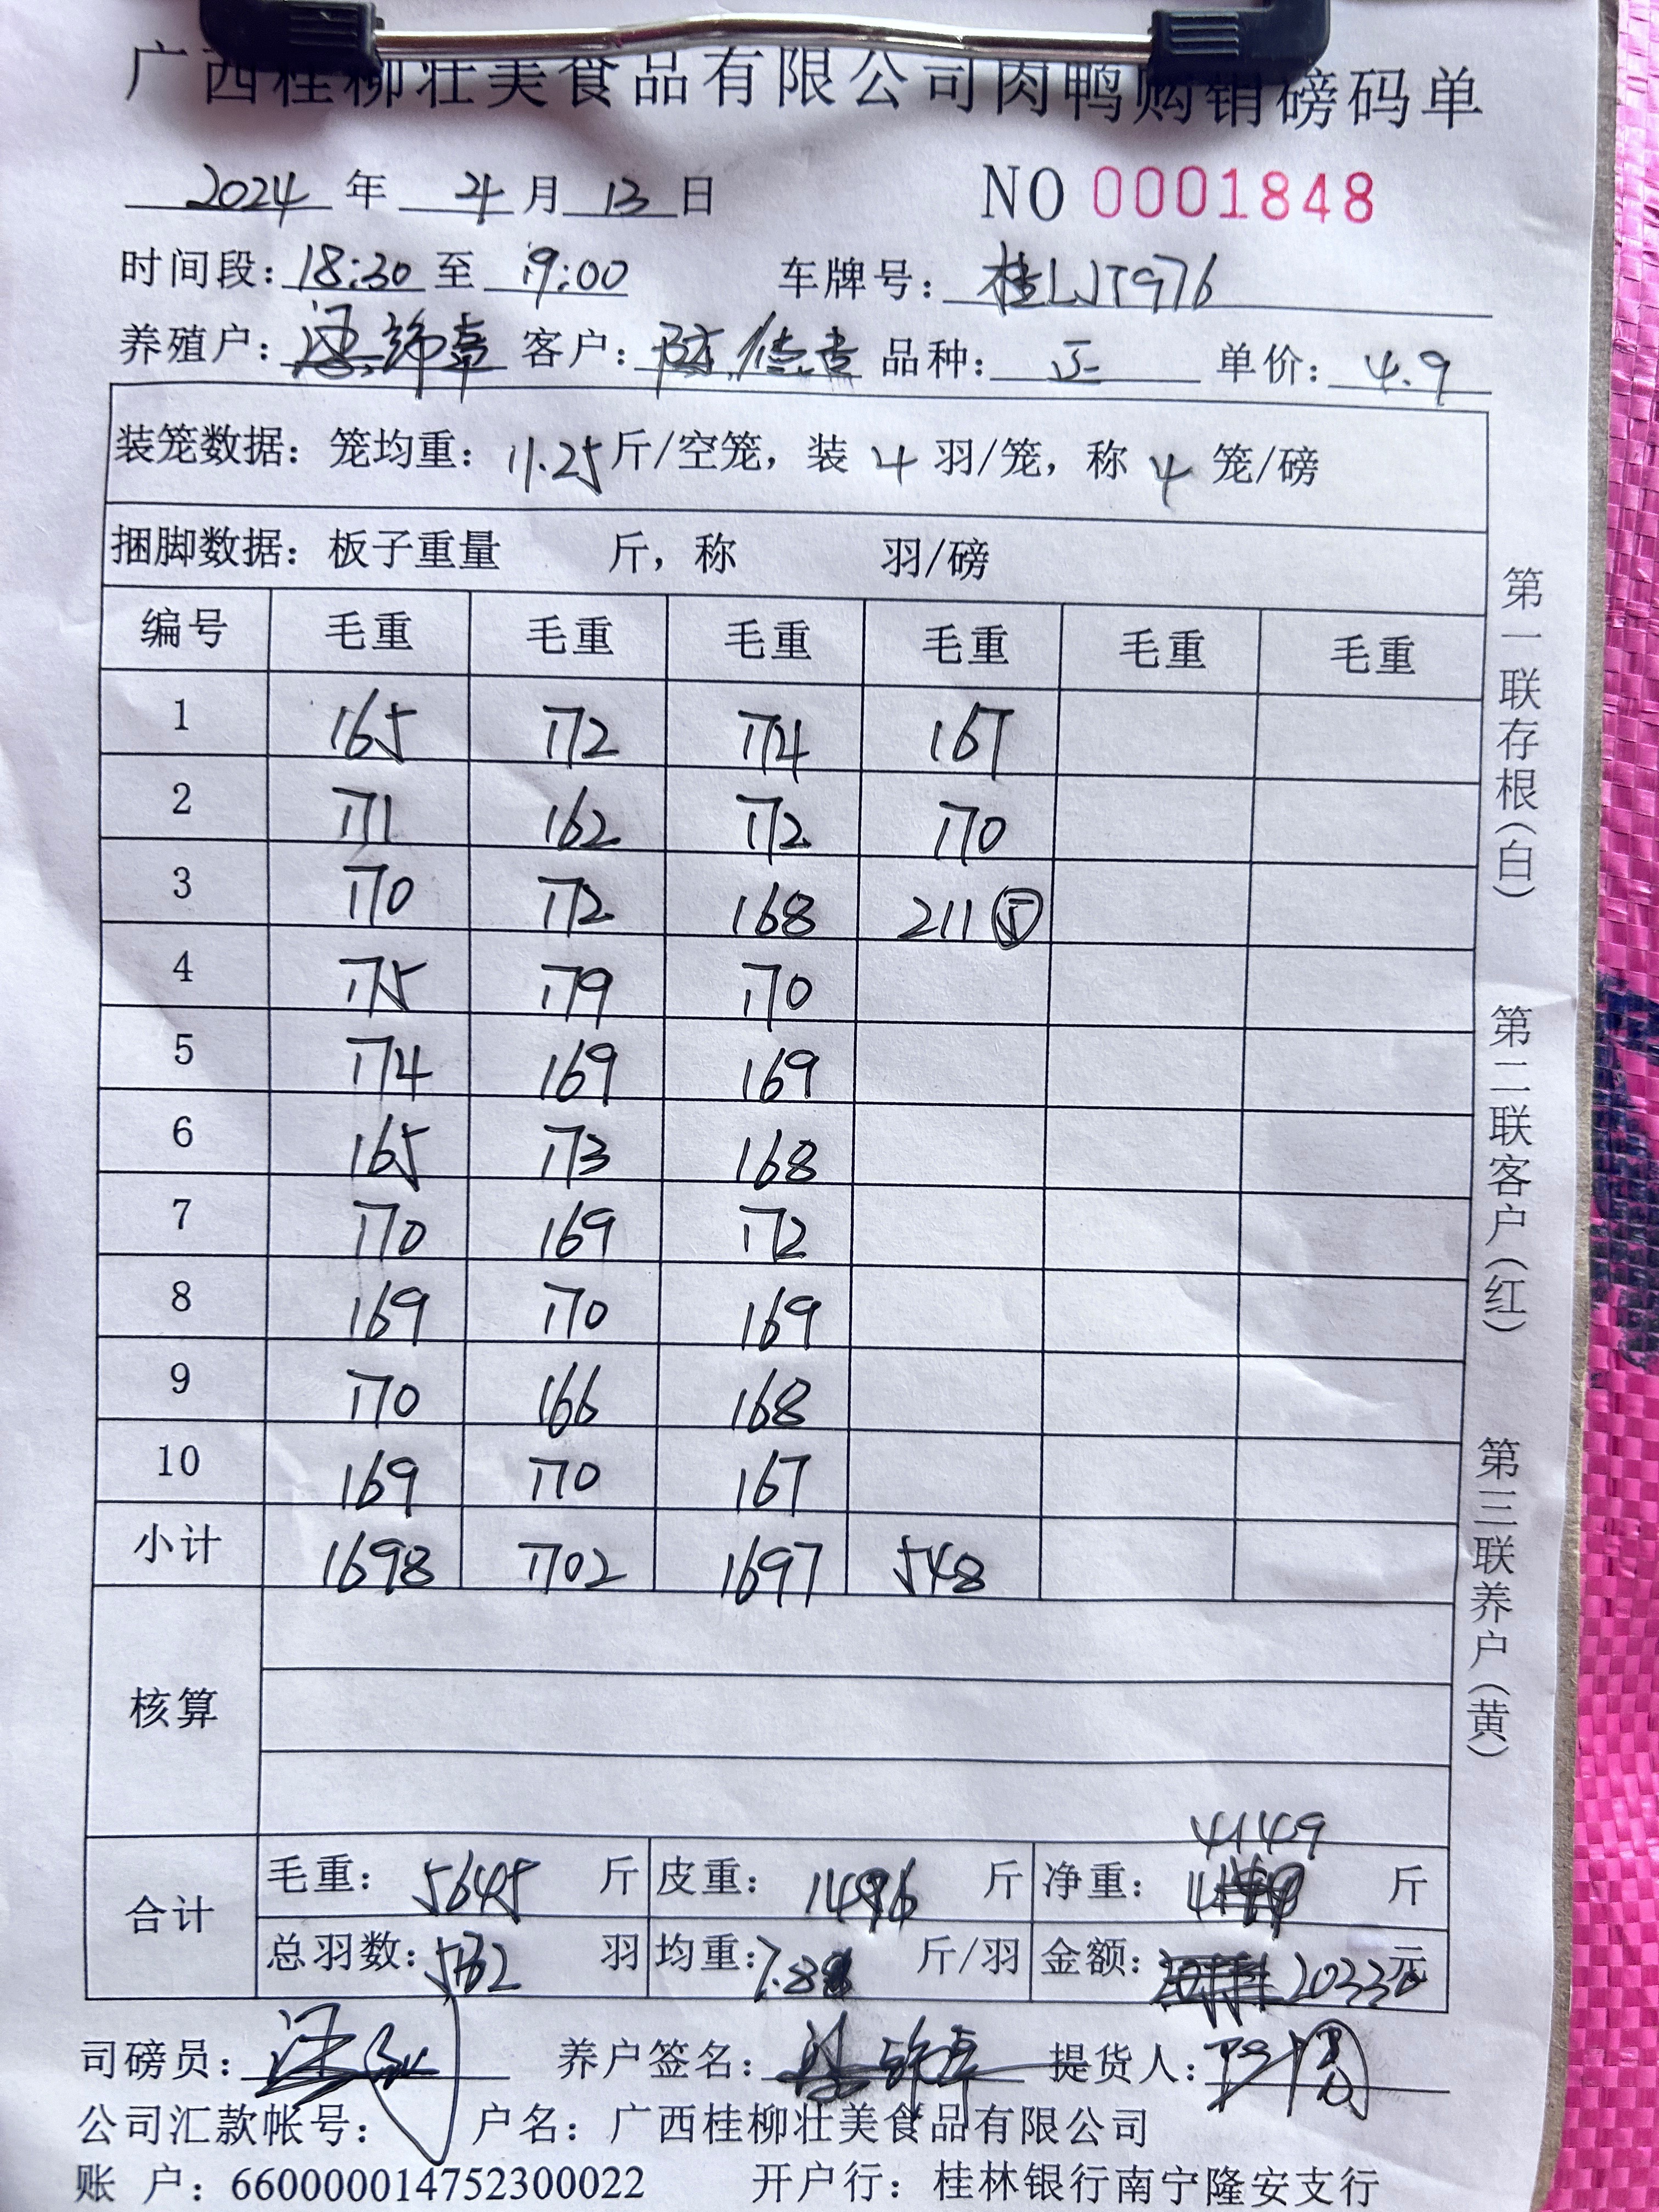 广西桂柳壮美食品有限公司肉鸭购销磅码单
2024 年 4 月 13 日 NO 0001848
时间段：18:30 至 19:00 车牌号：桂LJT976
养殖户： 客户： 品种：正 单价：4.9
装笼数据：笼均重：11.25斤/空笼，装 4 羽/笼，称 4 笼/磅
捆脚数据：板子重量 斤，称 羽/磅
编号 毛重 毛重 毛重 毛重 毛重 毛重
1 165 172 174 167
2 171 162 172 170
3 170 172 168 211 ⑤
4 175 179 170
5 174 169 169
6 165 173 168
7 170 169 172
8 169 170 169
9 170 166 168
10 169 170 167
小计 1698 1702 1697 548
核算
4149
合计 毛重：5645 斤 皮重：1496 斤 净重： 斤
总羽数：532 羽 均重： 斤/羽 金额：20330元
司磅员： 养户签名： 提货人：
公司汇款帐号： 户名：广西桂柳壮美食品有限公司
账 户：660000014752300022 开户行：桂林银行南宁隆安支行
第一联存根（白） 第二联客户（红） 第三联养户（黄）